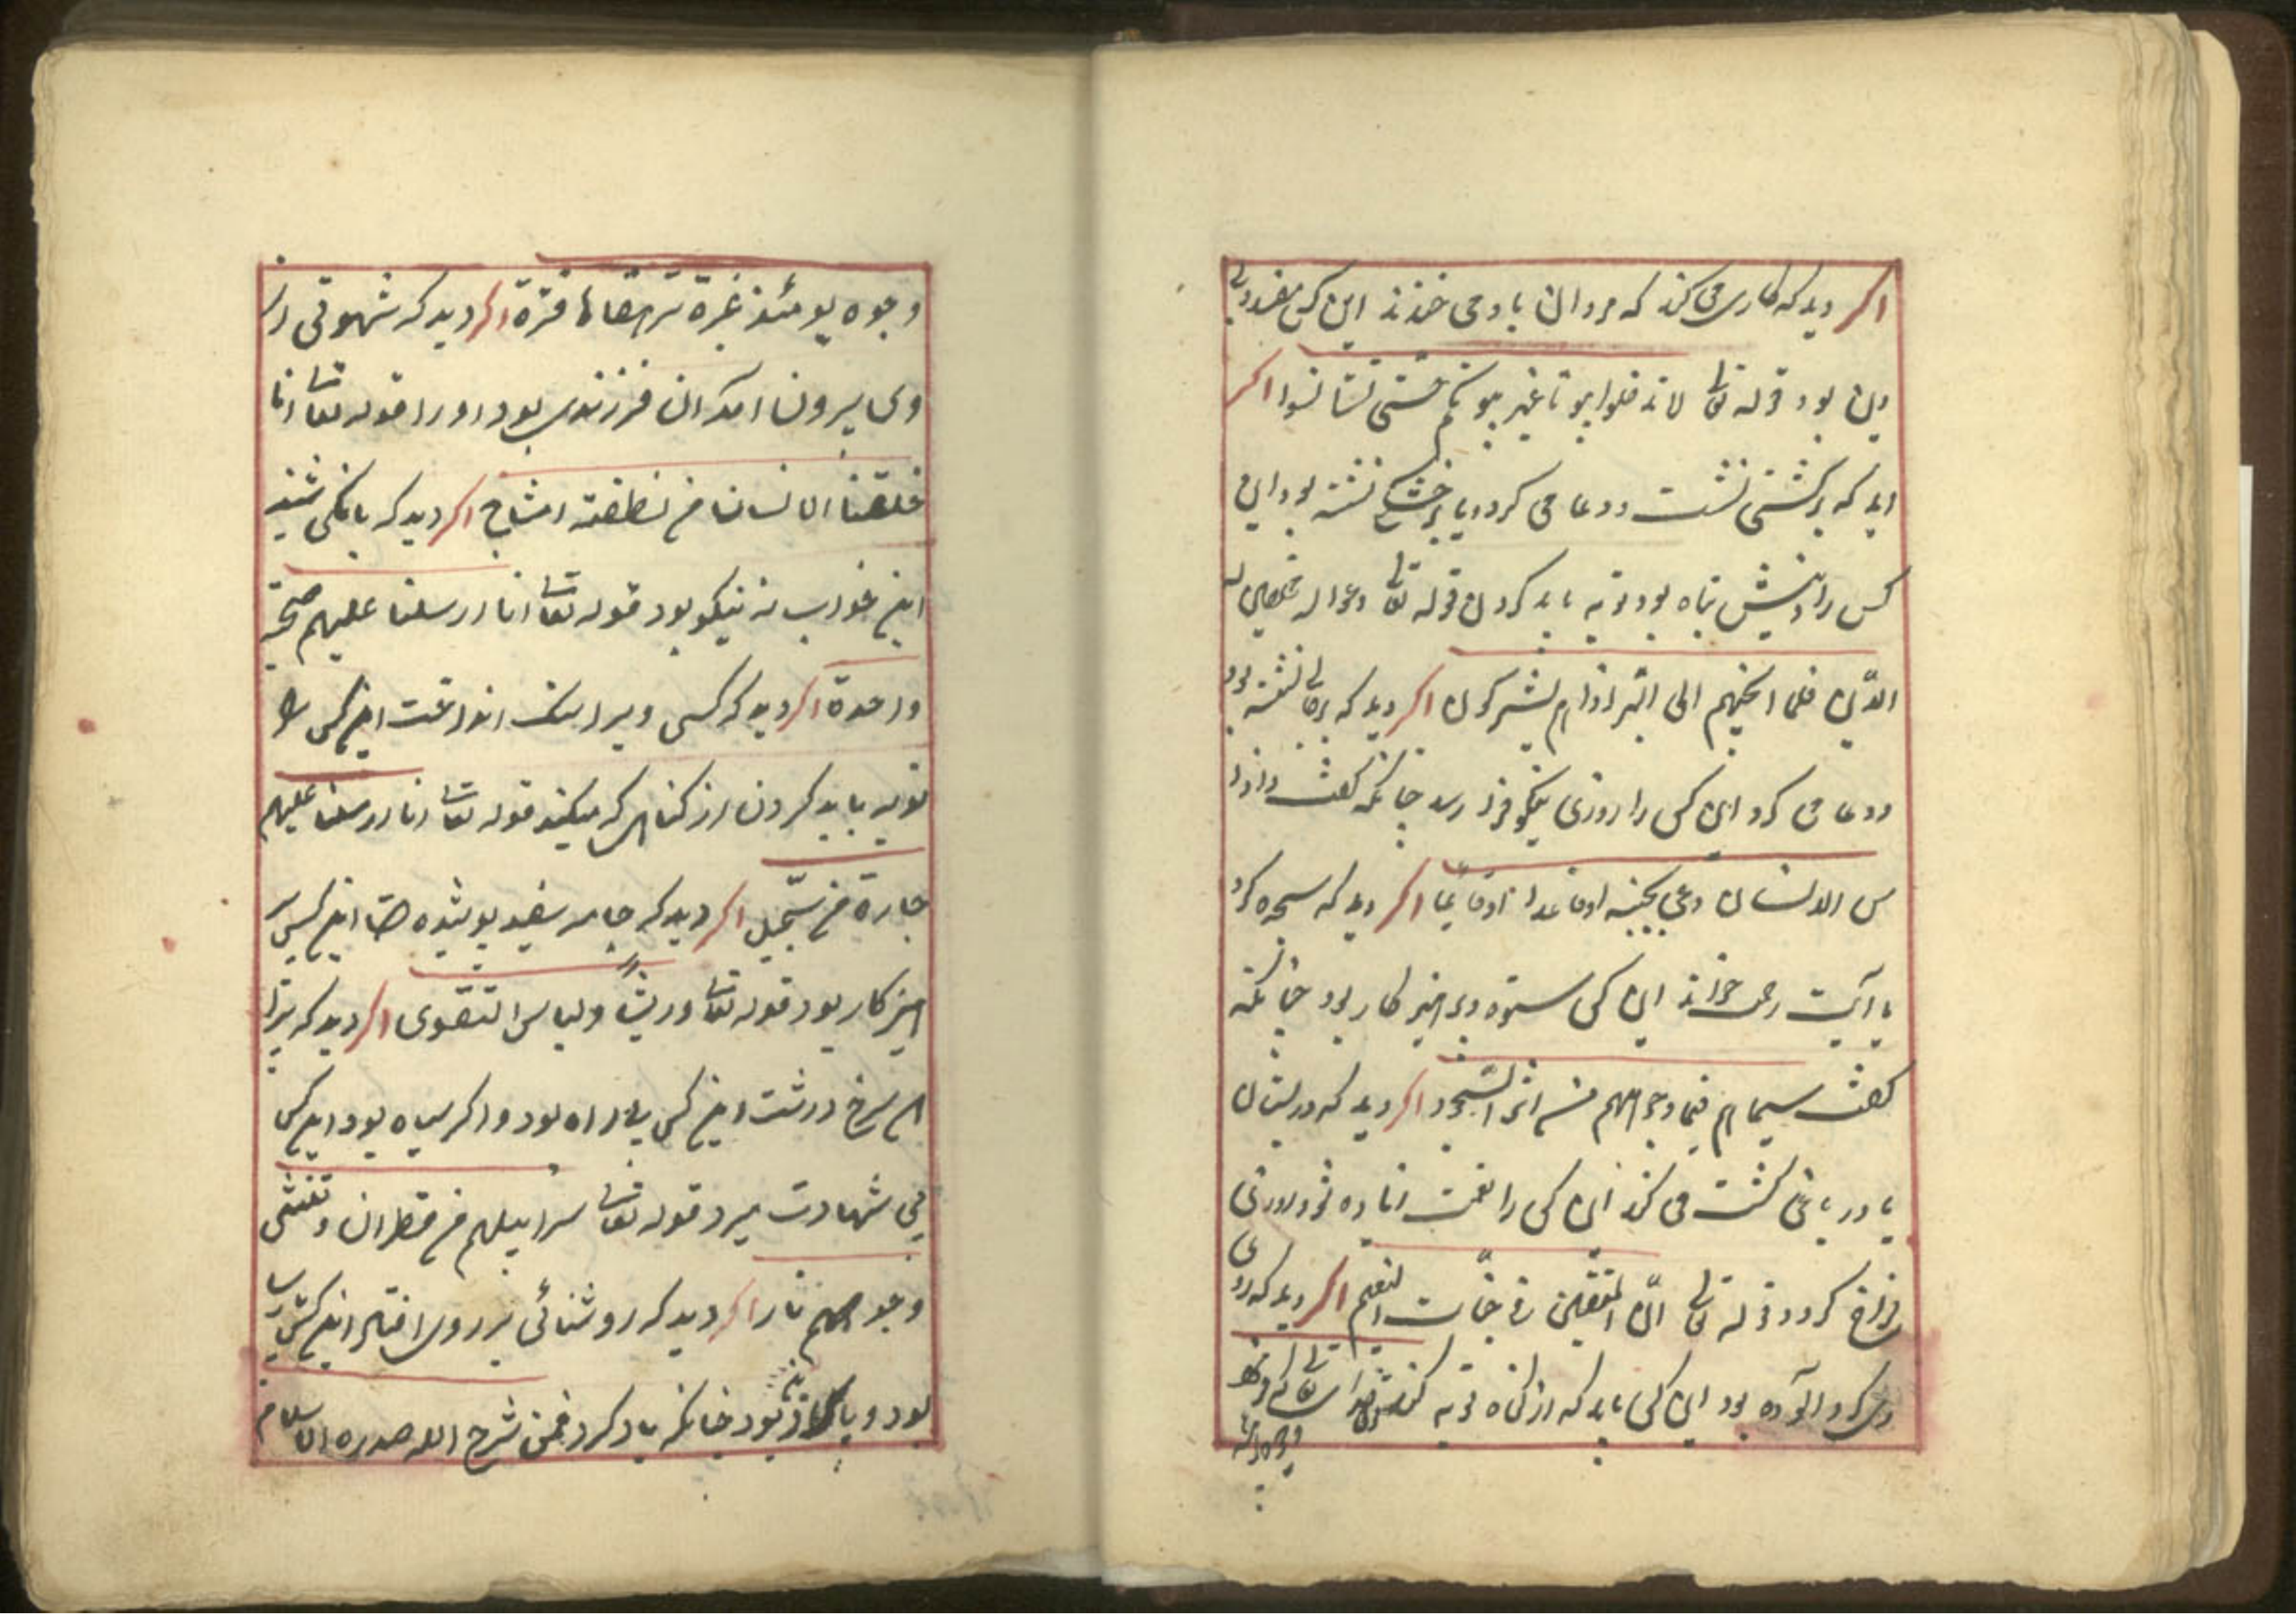 اکر دید که کاری می کند که مردان با وی خندند این کس مفسد و بی
دین بود قوله تعا لا تدخلوا بیوتا غیر بیوتکم حتی تستانسوا اکر
دید که بر کشتی نشست و دعا می کرد و یا بر خشکی نشسته بود این
کس را دینش تباه بود توبه باید کردن قوله تعا دعوا الله مخلصین له
الدین فلما انجیهم الی البر اذا هم یشرکون اکر دید که برجا نشسته بود
و دعا می کرد این کس را روزی نیکو فرا رسد چنانکه گفت و اذا
مس الانسان دعی بجنبه او قاعدا او قایما اکر دید که سجده کرد
یا آیت رحمت خواند این کس ستوده و با خیر کار بود چنانکه
گفت سیماهم فی وجوههم من اثر السجود اکر دید که در بستان
یا در باغی کشت می کند این کس را نعمت زیاده شود و روزی
فراخ کردد قوله تعا ان المتقین فی جنات النعیم اکر دید که روی
وی کرد آلوده بود این کس باید که از کناه توبه کند قوله تعا
وجوه یومئذ
وجوه یومئذ غبرة ترهقها قترة اکر دید که شهوتی از
وی بیرون امد ان فرزندی بود او را قوله تعا انا
خلقنا الانسان من نطفته امشاج اکر دید که بانکی شنید
این خواب نه نیکو بود قوله تعا انا ارسلنا علیهم صیحة
واحدة اکر دید که کسی ویرا سنک انداخت این کس را
توبه باید کردن از کناهی که میکند قوله تعا انا ارسلنا علیهم
حجارة من سجیل اکر دید که جامه سفید پوشیده است این کس
امیر کار بود قوله تعا وریشا ولباس التقوی اکر دید که
سرخ درشت این کس براه بود و اکر سیاه بود این کس
بی شهادت میرد قوله تعا سرابیلهم من قطران و تغشی
وجوههم نار اکر دید که روشنائی بر روی افتاد این کس
بود و پاک بود چنانکه یاد کرد فمن شرح الله صدره الاسلام